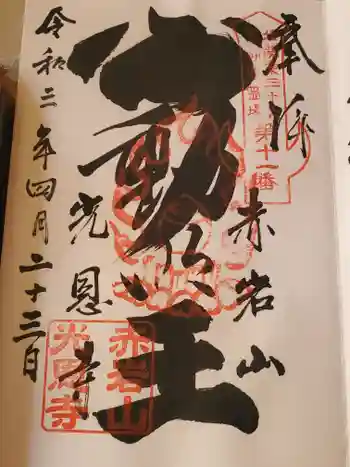 奉拝
第十一番
赤岩山
不動明王
光恩寺
令和二年四月二十三日
赤岩山
光恩寺